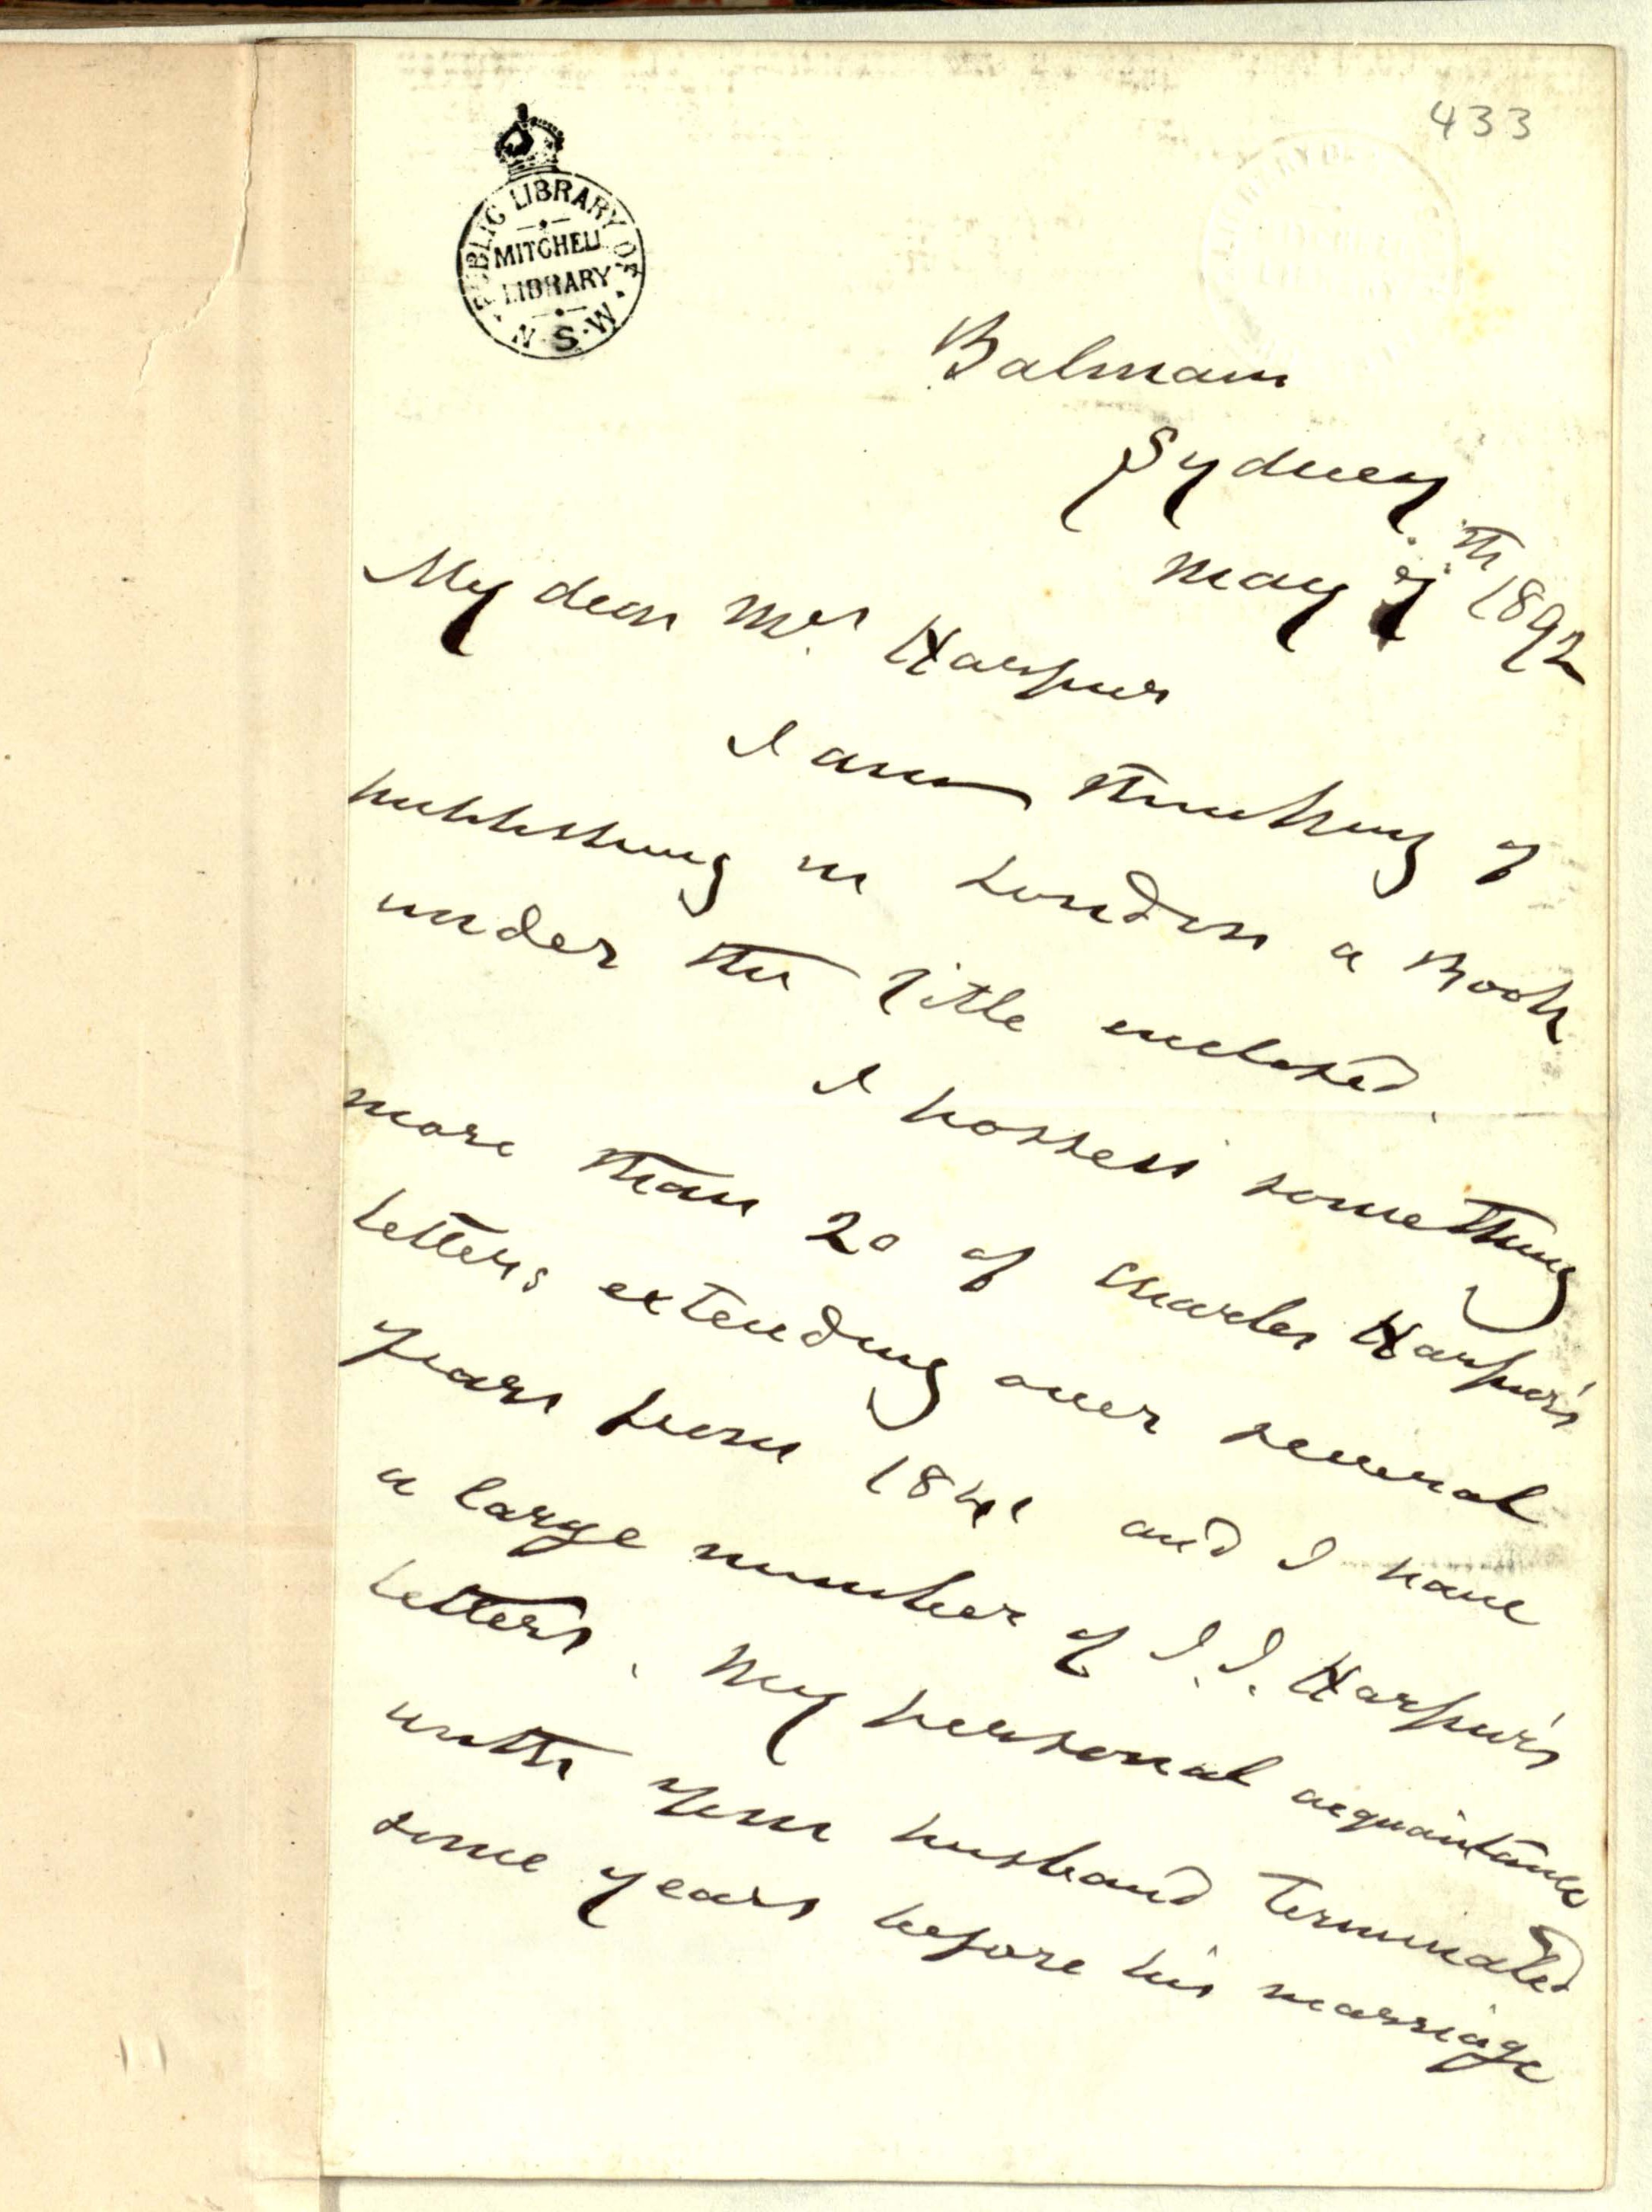 433
PUBLIC LIBRARY OF N.S.W.
MITCHELL
LIBRARY
Balmain
Sydney.
May 9th 1892
My dear Mrs Harpur
I am thinking of
publishing in London a Book
under the title enclosed.
I possess something
more than 20 of Charles Harpur's
letters extending over several
years from 1841 and I have
a large number of J.J. Harpur's
letters. My personal acquaintance
with your husband terminated
some years before his marriage